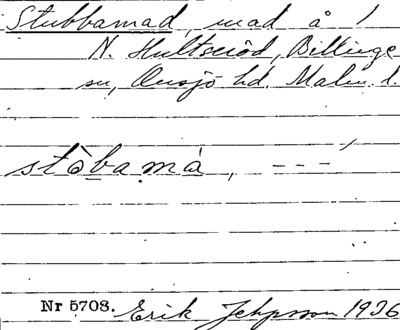 Stubbamad, mad å 1
N. Hultseröd, Billinge
sn, Onsjö hd. Malm. l.
stòbamà, - - -
Nr 5708. Erik Jeppsson 1936